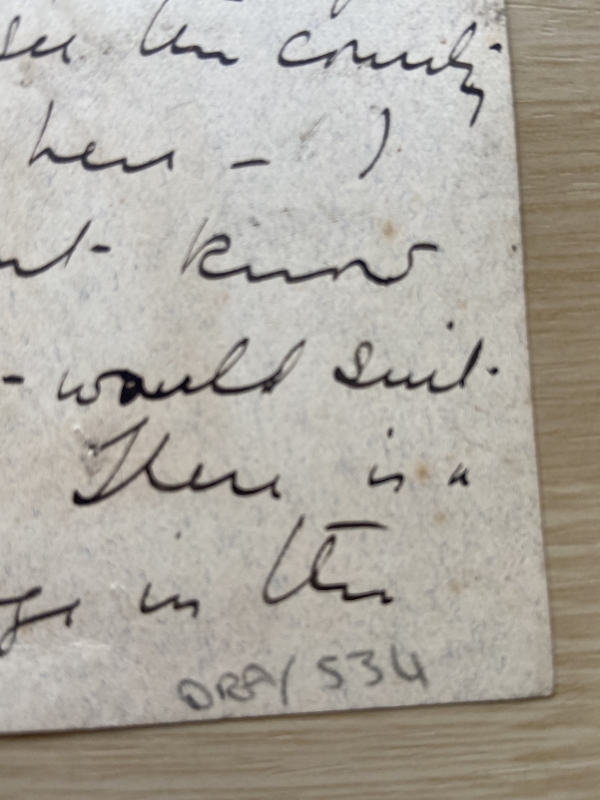 see the county
here - I
know
- would suit.
There is a
in the
DRA/534